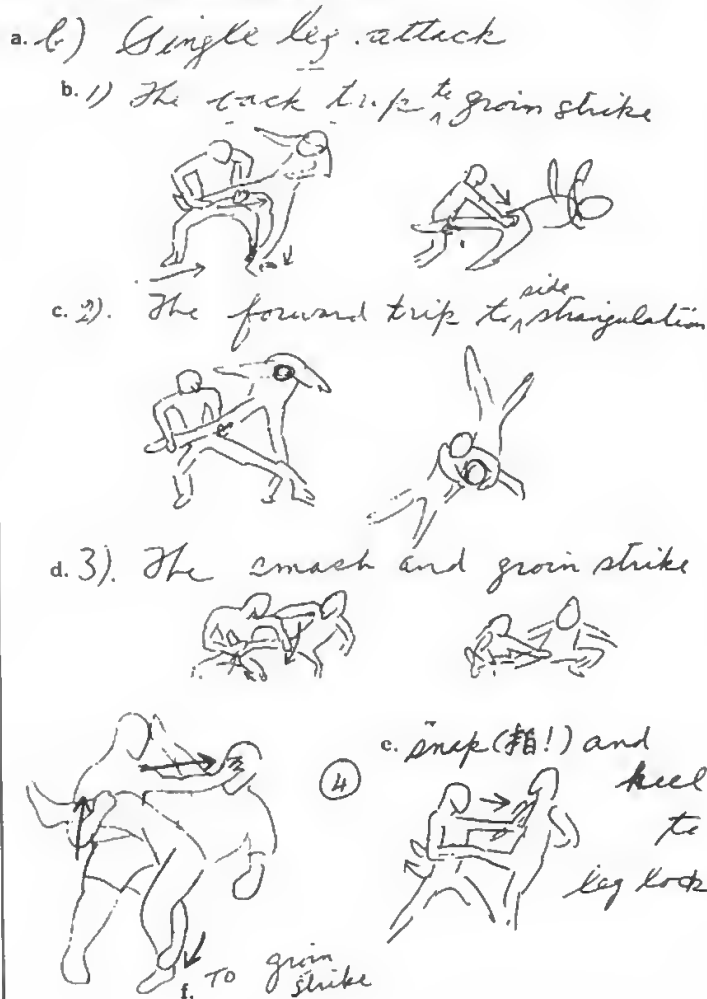 a. b) Single leg attack
b. 1) The back trip to groin strike
c. 2). The forward trip to side strangulation
d. 3). The smash and groin strike
④
e. snap (拍!) and
heel
to
leg lock
f. To groin
strike